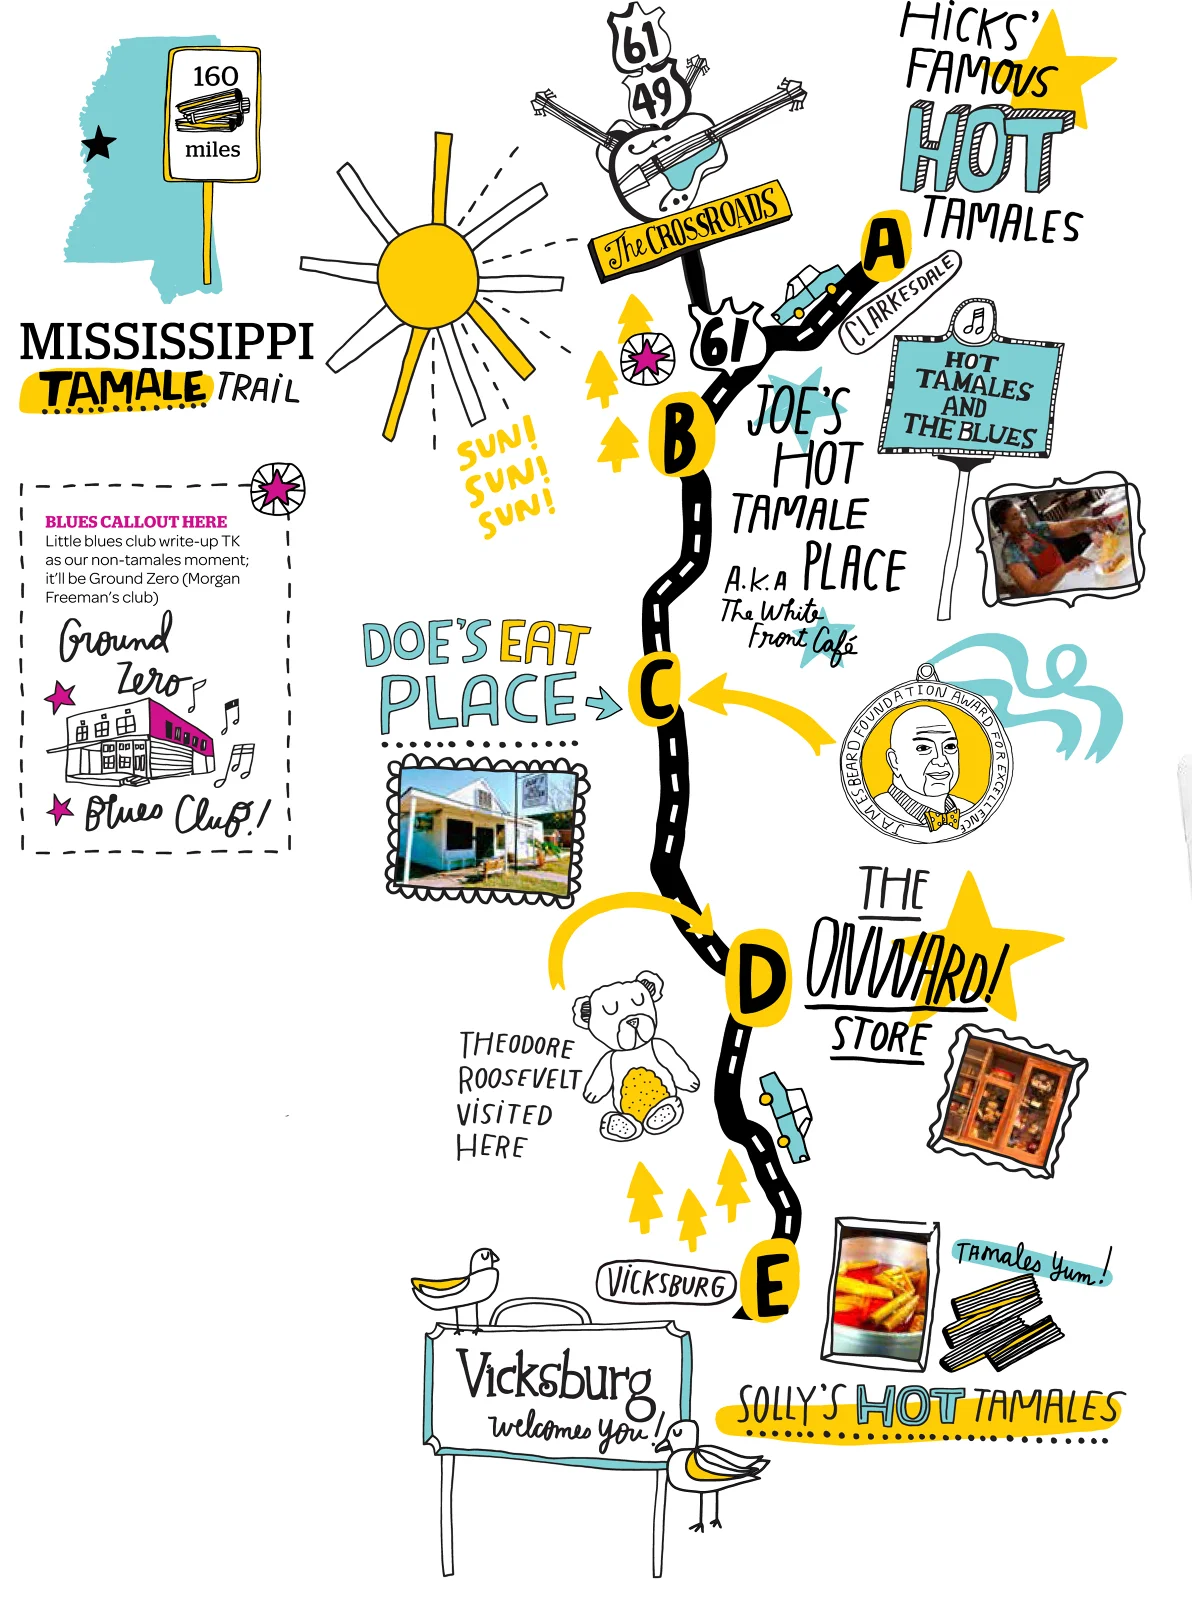 160
miles
MISSISSIPPI
TAMALE TRAIL
BLUES CALLOUT HERE
Little blues club write-up TK
as our non-tamales moment;
it'll be Ground Zero (Morgan
Freeman's club)
Ground
Zero
Blues Club!
SUN!
SUN!
SUN!
61
49
The CROSSROADS
61
HICKS'
FAMOUS
HOT
TAMALES
A
CLARKESDALE
HOT
TAMALES
AND
THE BLUES
B
JOE'S
HOT
TAMALE
PLACE
A.K.A
The White
Front Café
DOE'S EAT
PLACE
C
JAMES BEARD FOUNDATION AWARD FOR EXCELLENCE
THE
ONWARD!
STORE
D
THEODORE
ROOSEVELT
VISITED
HERE
VICKSBURG
E
Tamales Yum!
SOLLY'S HOT TAMALES
Vicksburg
welcomes you!